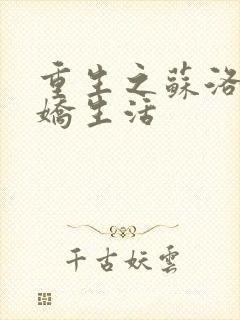 重生之蘇洛
嬌生活
千古妖雲